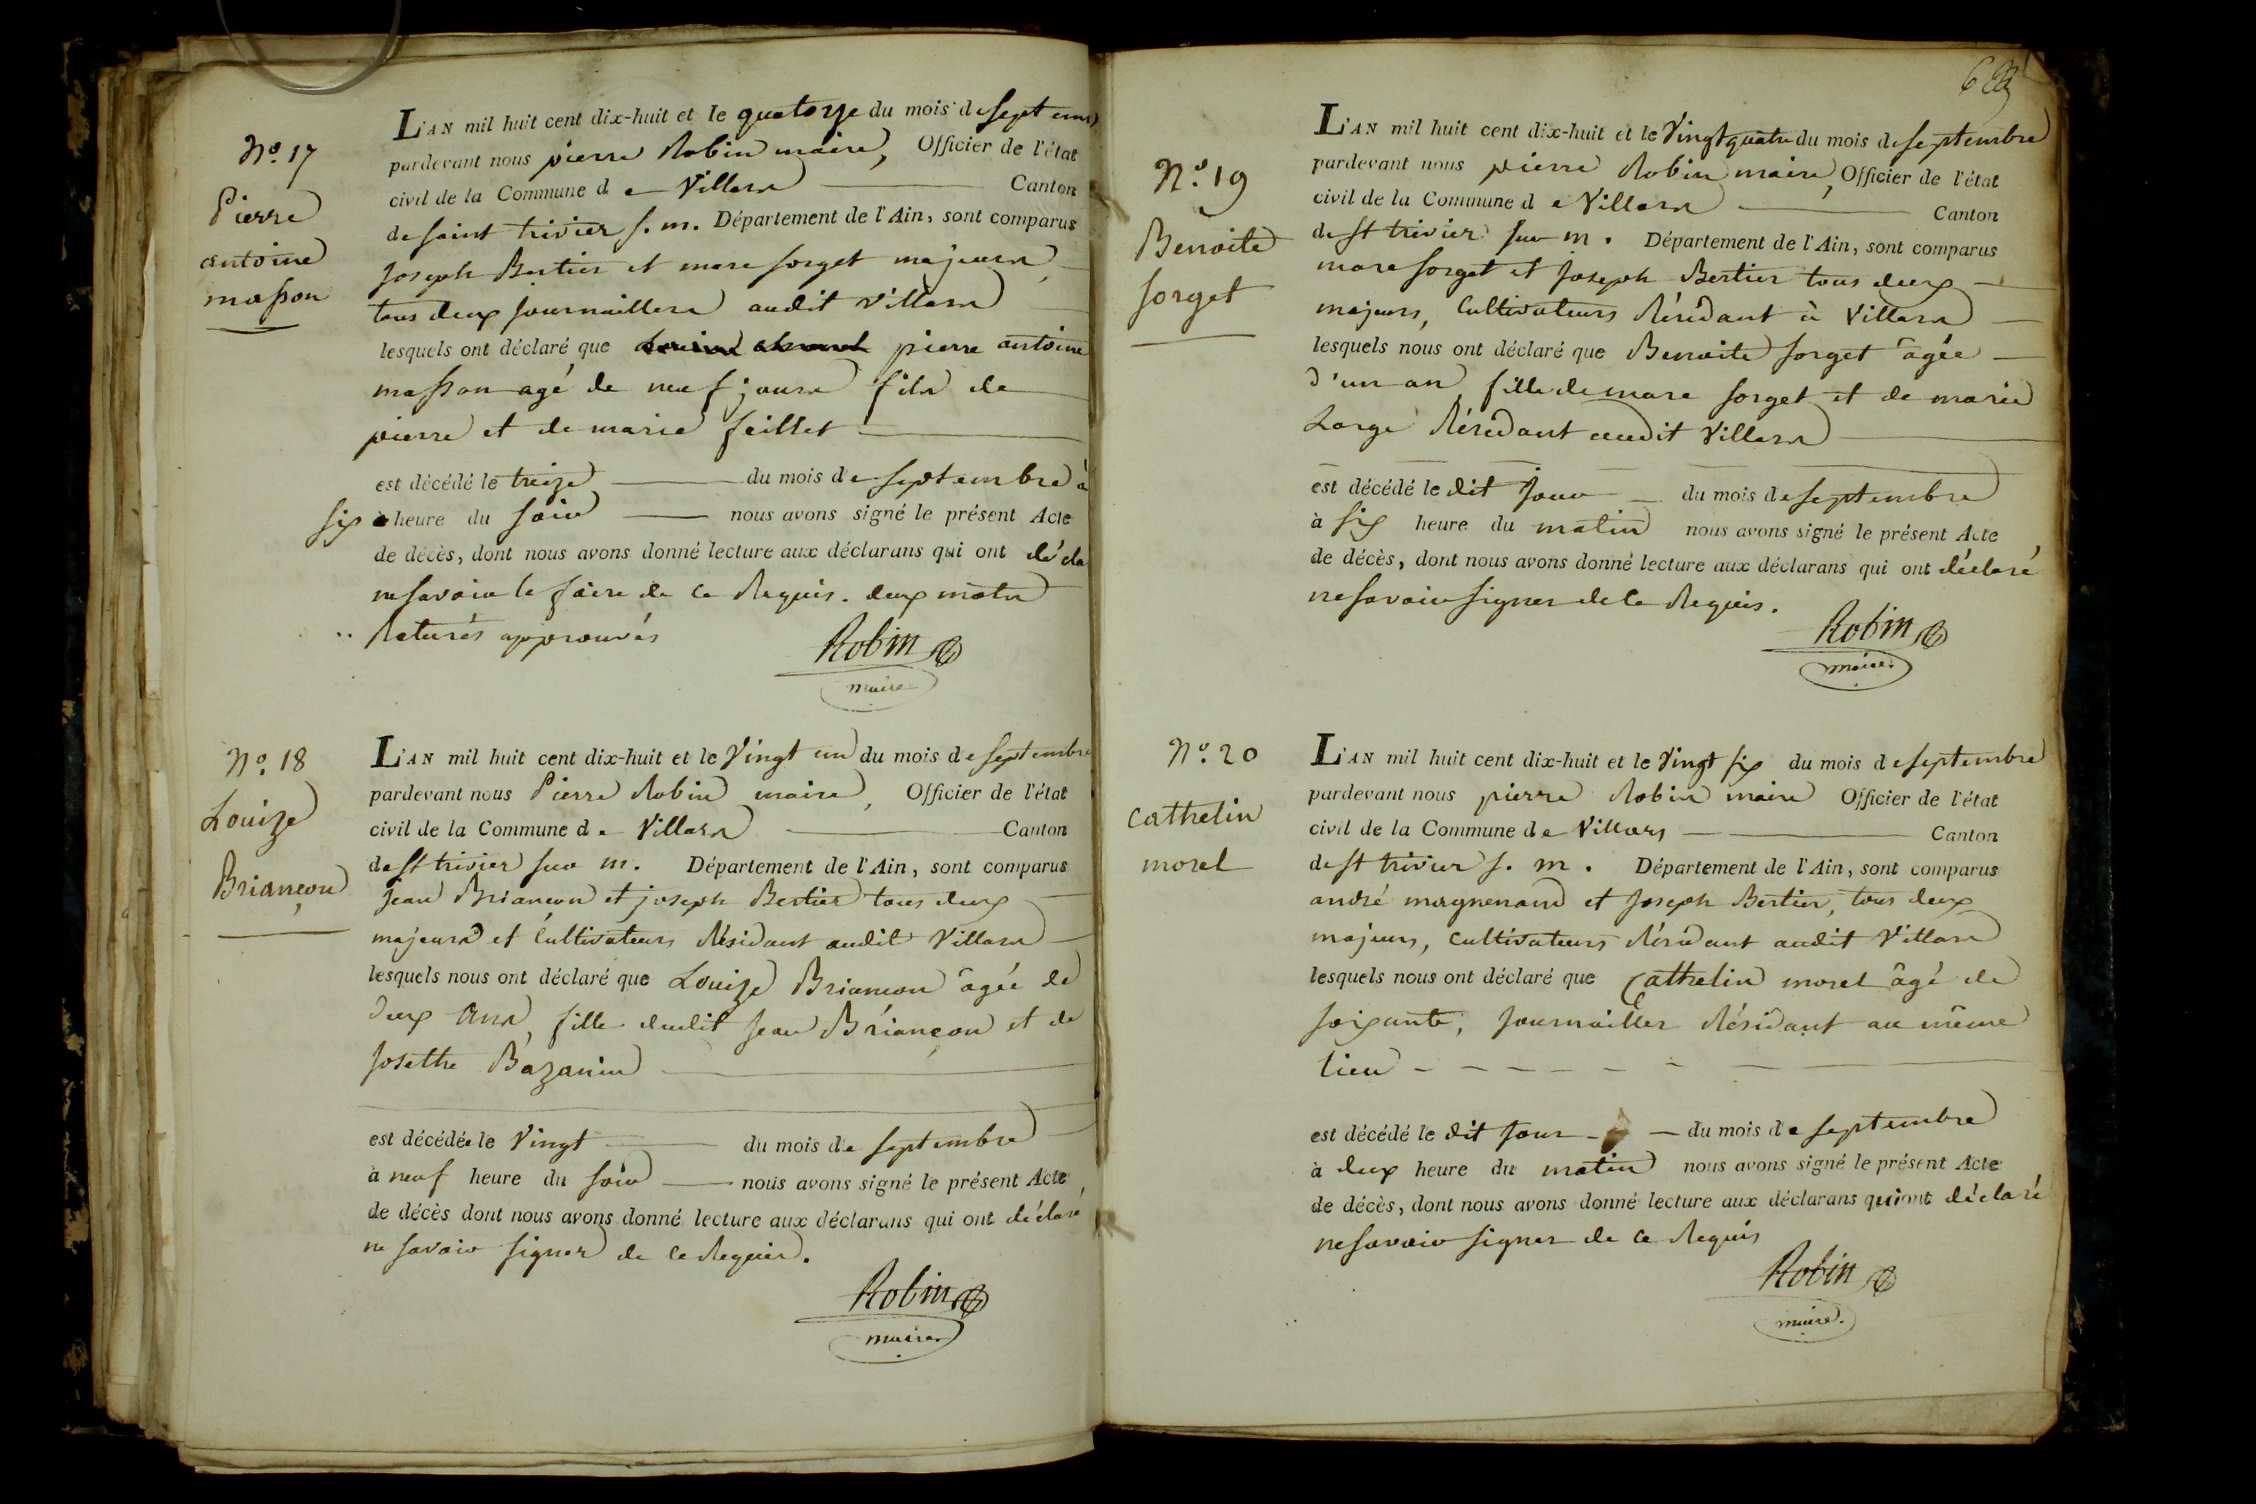 N.o 17
Pierre
antoine
masson
L'AN mil huit cent dix-huit et le quatorze du mois de septem
pardevant nous pierre Robin maire, Officier de l'état
civil de la Commune de Villars Canton
de saint trivier s. m. Département de l'Ain, sont comparus
joseph Bertier et marc forget majeurs
tous deux journaillers audit Villars
lesquels ont déclaré que pierre antoine
masson agé de neuf jours fils de
pierre et de marie feillet
est décédé le treize du mois de septembre à
six heure du soir nous avons signé le présent Acte
de décès, dont nous avons donné lecture aux déclarans qui ont décla
ne savoir le faire de ce Requis. deux mots
Raturés approuvés
Robin
maire
N.o 18
Louize
Briançon
L'AN mil huit cent dix-huit et le Vingt un du mois de septembre
pardevant nous Pierre Robin maire, Officier de l'état
civil de la Commune de Villars Canton
de St trivier sur m. Département de l'Ain, sont comparus
jean Briancon et joseph Bertier tous deux
majeurs et Cultivateurs Résidant audit Villars
lesquels nous ont déclaré que Louize Briancon âgée de
Deux Ans, fille dudit jean Briançon et de
josethe Bazanin
est décédée le Vingt du mois de septembre
à neuf heure du soir nous avons signé le présent Acte
de décès dont nous avons donné lecture aux déclarans qui ont déclaré
ne savoir signer de ce Requis.
Robin
maire
N.o 19
Benoite
forget
L'AN mil huit cent dix-huit et le Vingt quatre du mois de septembre
pardevant nous pierre Robin maire, Officier de l'état
civil de la Commune de Villars Canton
de St trivier sur m. Département de l'Ain, sont comparus
marc forget et joseph Bertier tous deux
majeurs, Cultivateurs Résidant à Villars
lesquels nous ont déclaré que Benoite forget âgée
D'un an fille de marc forget et de marie
Large Résidant audit Villars
est décédé le dit Jour du mois de septembre
à six heure du matin nous avons signé le présent Acte
de décès, dont nous avons donné lecture aux déclarans qui ont déclaré
ne savoir signer de ce Requis.
Robin
maire.
N.o 20
Cathelin
morel
L'AN mil huit cent dix-huit et le Vingt six du mois de septembre
pardevant nous pierre Robin maire Officier de l'état
civil de la Commune de Villars Canton
de St trivier s. m. Département de l'Ain, sont comparus
andré magnenand et joseph Bertier, tous deux
majeurs, Cultivateurs Résidant audit Villars
lesquels nous ont déclaré que Cathelin morel âgé de
soixante, journailler Résidant au même
lieu
est décédé le dit Jour du mois de septembre
à deux heure du matin nous avons signé le présent Acte
de décès, dont nous avons donné lecture aux déclarans qui ont déclaré
ne savoir signer de ce Requis
Robin
maire.